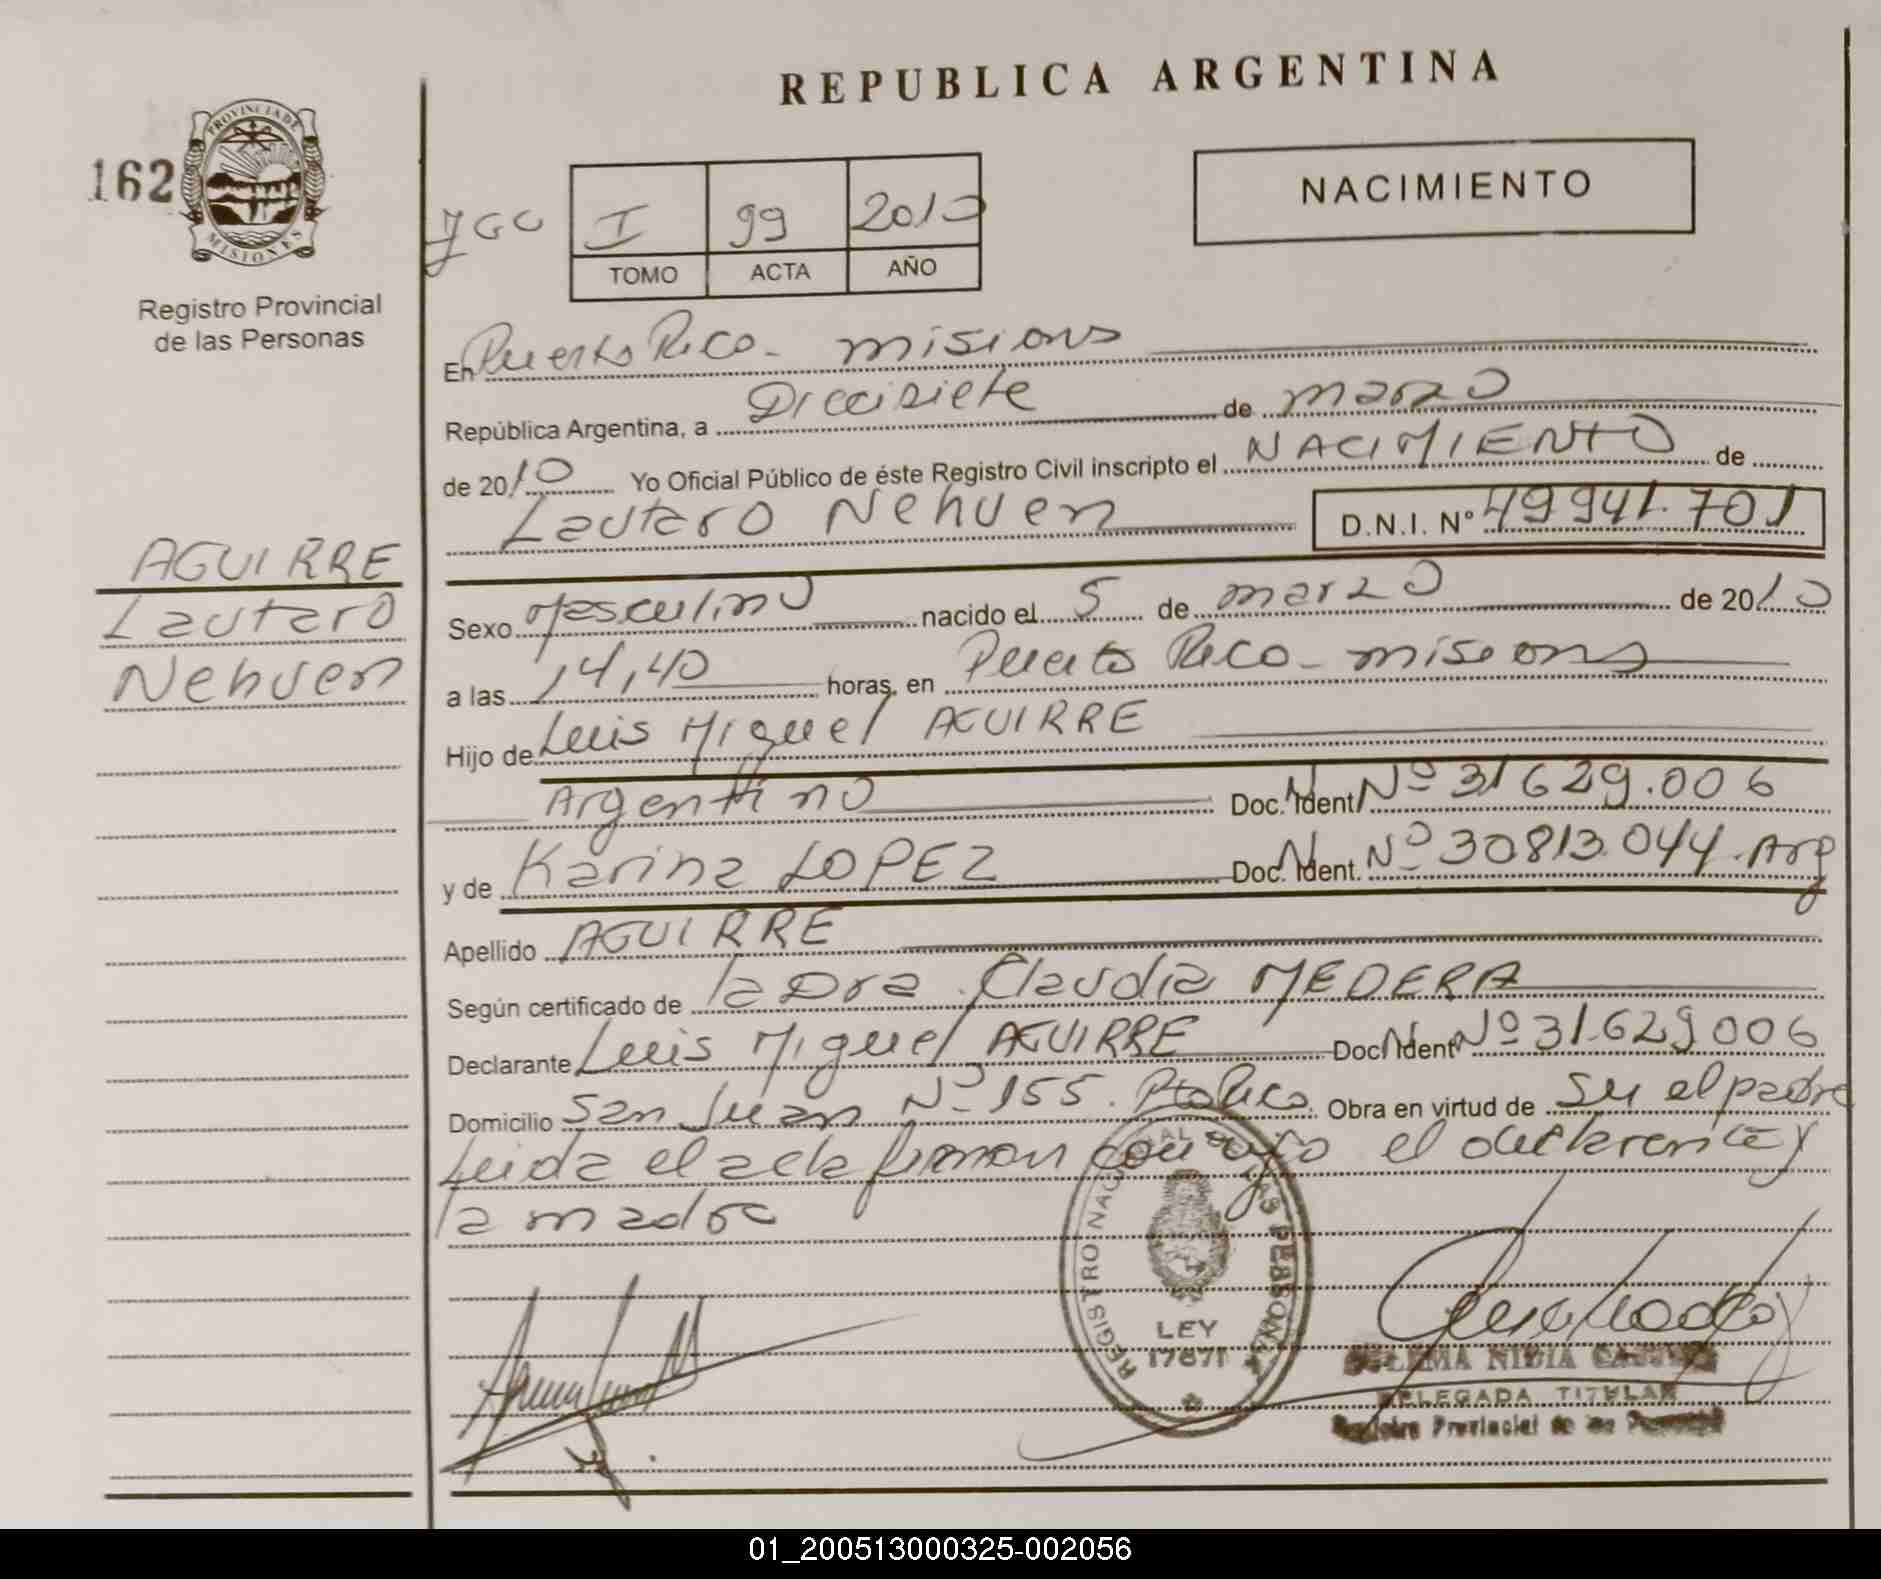 REPUBLICA ARGENTINA
PROVINCIA DE MISIONES
162
Registro Provincial
de las Personas
I 99 2010
TOMO ACTA AÑO
NACIMIENTO
En Puerto Rico - misiones
República Argentina, a Diecisiete de marzo
de 2010 Yo Oficial Público de éste Registro Civil inscripto el NACIMIENTO de
Lautaro Nehuen D.N.I. Nº 49941.701
AGUIRRE
Lautaro
Nehuen
Sexo Masculino nacido el 5 de marzo de 2010
a las 14,40 horas, en Puerto Rico - misiones
Hijo de Luis Miguel AGUIRRE
Argentino Doc. Ident Nº 31629.006
y de Karina LOPEZ Doc. Ident. Nº 30813.044. Arg
Apellido AGUIRRE
Según certificado de la Dra. Claudia MEDERA
Declarante Luis Miguel AGUIRRE Doc Ident Nº 31.629006
Domicilio San Juan Nº 155. Pto Rico. Obra en virtud de su el padre
Leida el acta firman el declarante y
la madre
REGISTRO NACIONAL DE LAS PERSONAS
LEY
17671
NIDIA
DELEGADA TITULAR
Registro Provincial de las Personas
01_200513000325-002056